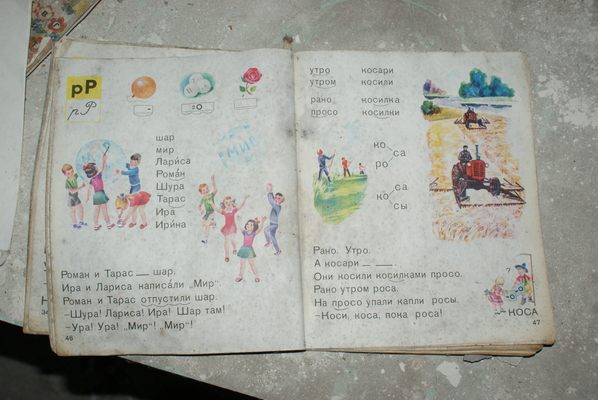 рР
рР
шар
мир
Лари́са
Рома́н
Шура
Тарас
Ира
Ири́на
"МИР"
Роман и Тарас — шар.
Ира и Лариса написа́ли „Мир".
Роман и Тарас отпустили шар.
–Шура! Лариса! Ира! Шар там!
–Ура! Ура! „Мир"! „Мир"!
46
утро косари
утром косили
рано косилка
просо косилки
ко са
ро
са
ко
сы
Рано. Утро.
А косари — —.
Они косили косилками просо.
Рано утром роса.
На просо упали капли росы.
–Коси, коса, пока роса!
КОСА
47